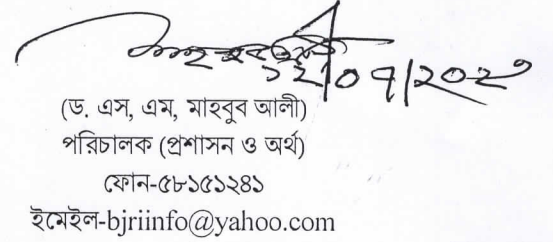 (ড. এস, এম, মাহবুব আলী)
পরিচালক (প্রশাসন ও অর্থ)
ফোন-৫৮১৫১২৪১
ইমেইল-bjriinfo@yahoo.com